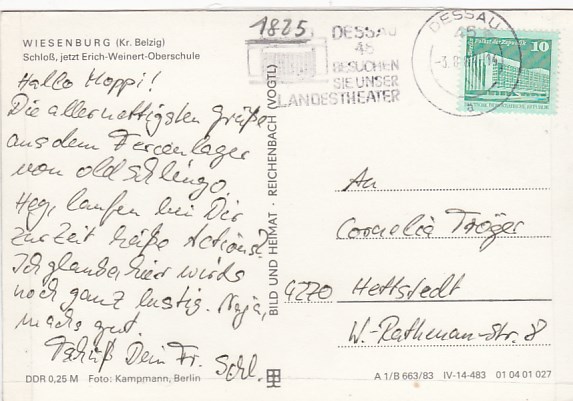 1825
WIESENBURG (Kr. Belzig)
Schloß, jetzt Erich-Weinert-Oberschule
Hallo Hoppi!
Die allernettigsten Grüße
aus dem Ferienlager
von old Schlingo.
Hey, laufen bei Dir
zur Zeit heiße Actions?
Ich glaube hier wirds
noch ganz lustig. Naja,
machs gut.
Tschüß Dein Fr. Schl.
DDR 0,25 M Foto: Kampmann, Berlin
BILD UND HEIMAT · REICHENBACH (VOGTL)
DESSAU
45
BESUCHEN
SIE UNSER
LANDESTHEATER
DESSAU
45
-3.8. 14
a
Palast der Republik 10
An
Cornelia Tröger
4270 Hettstedt
W.-Rathenau-Str. 8
A 1/B 663/83 IV-14-483 01 04 01 027